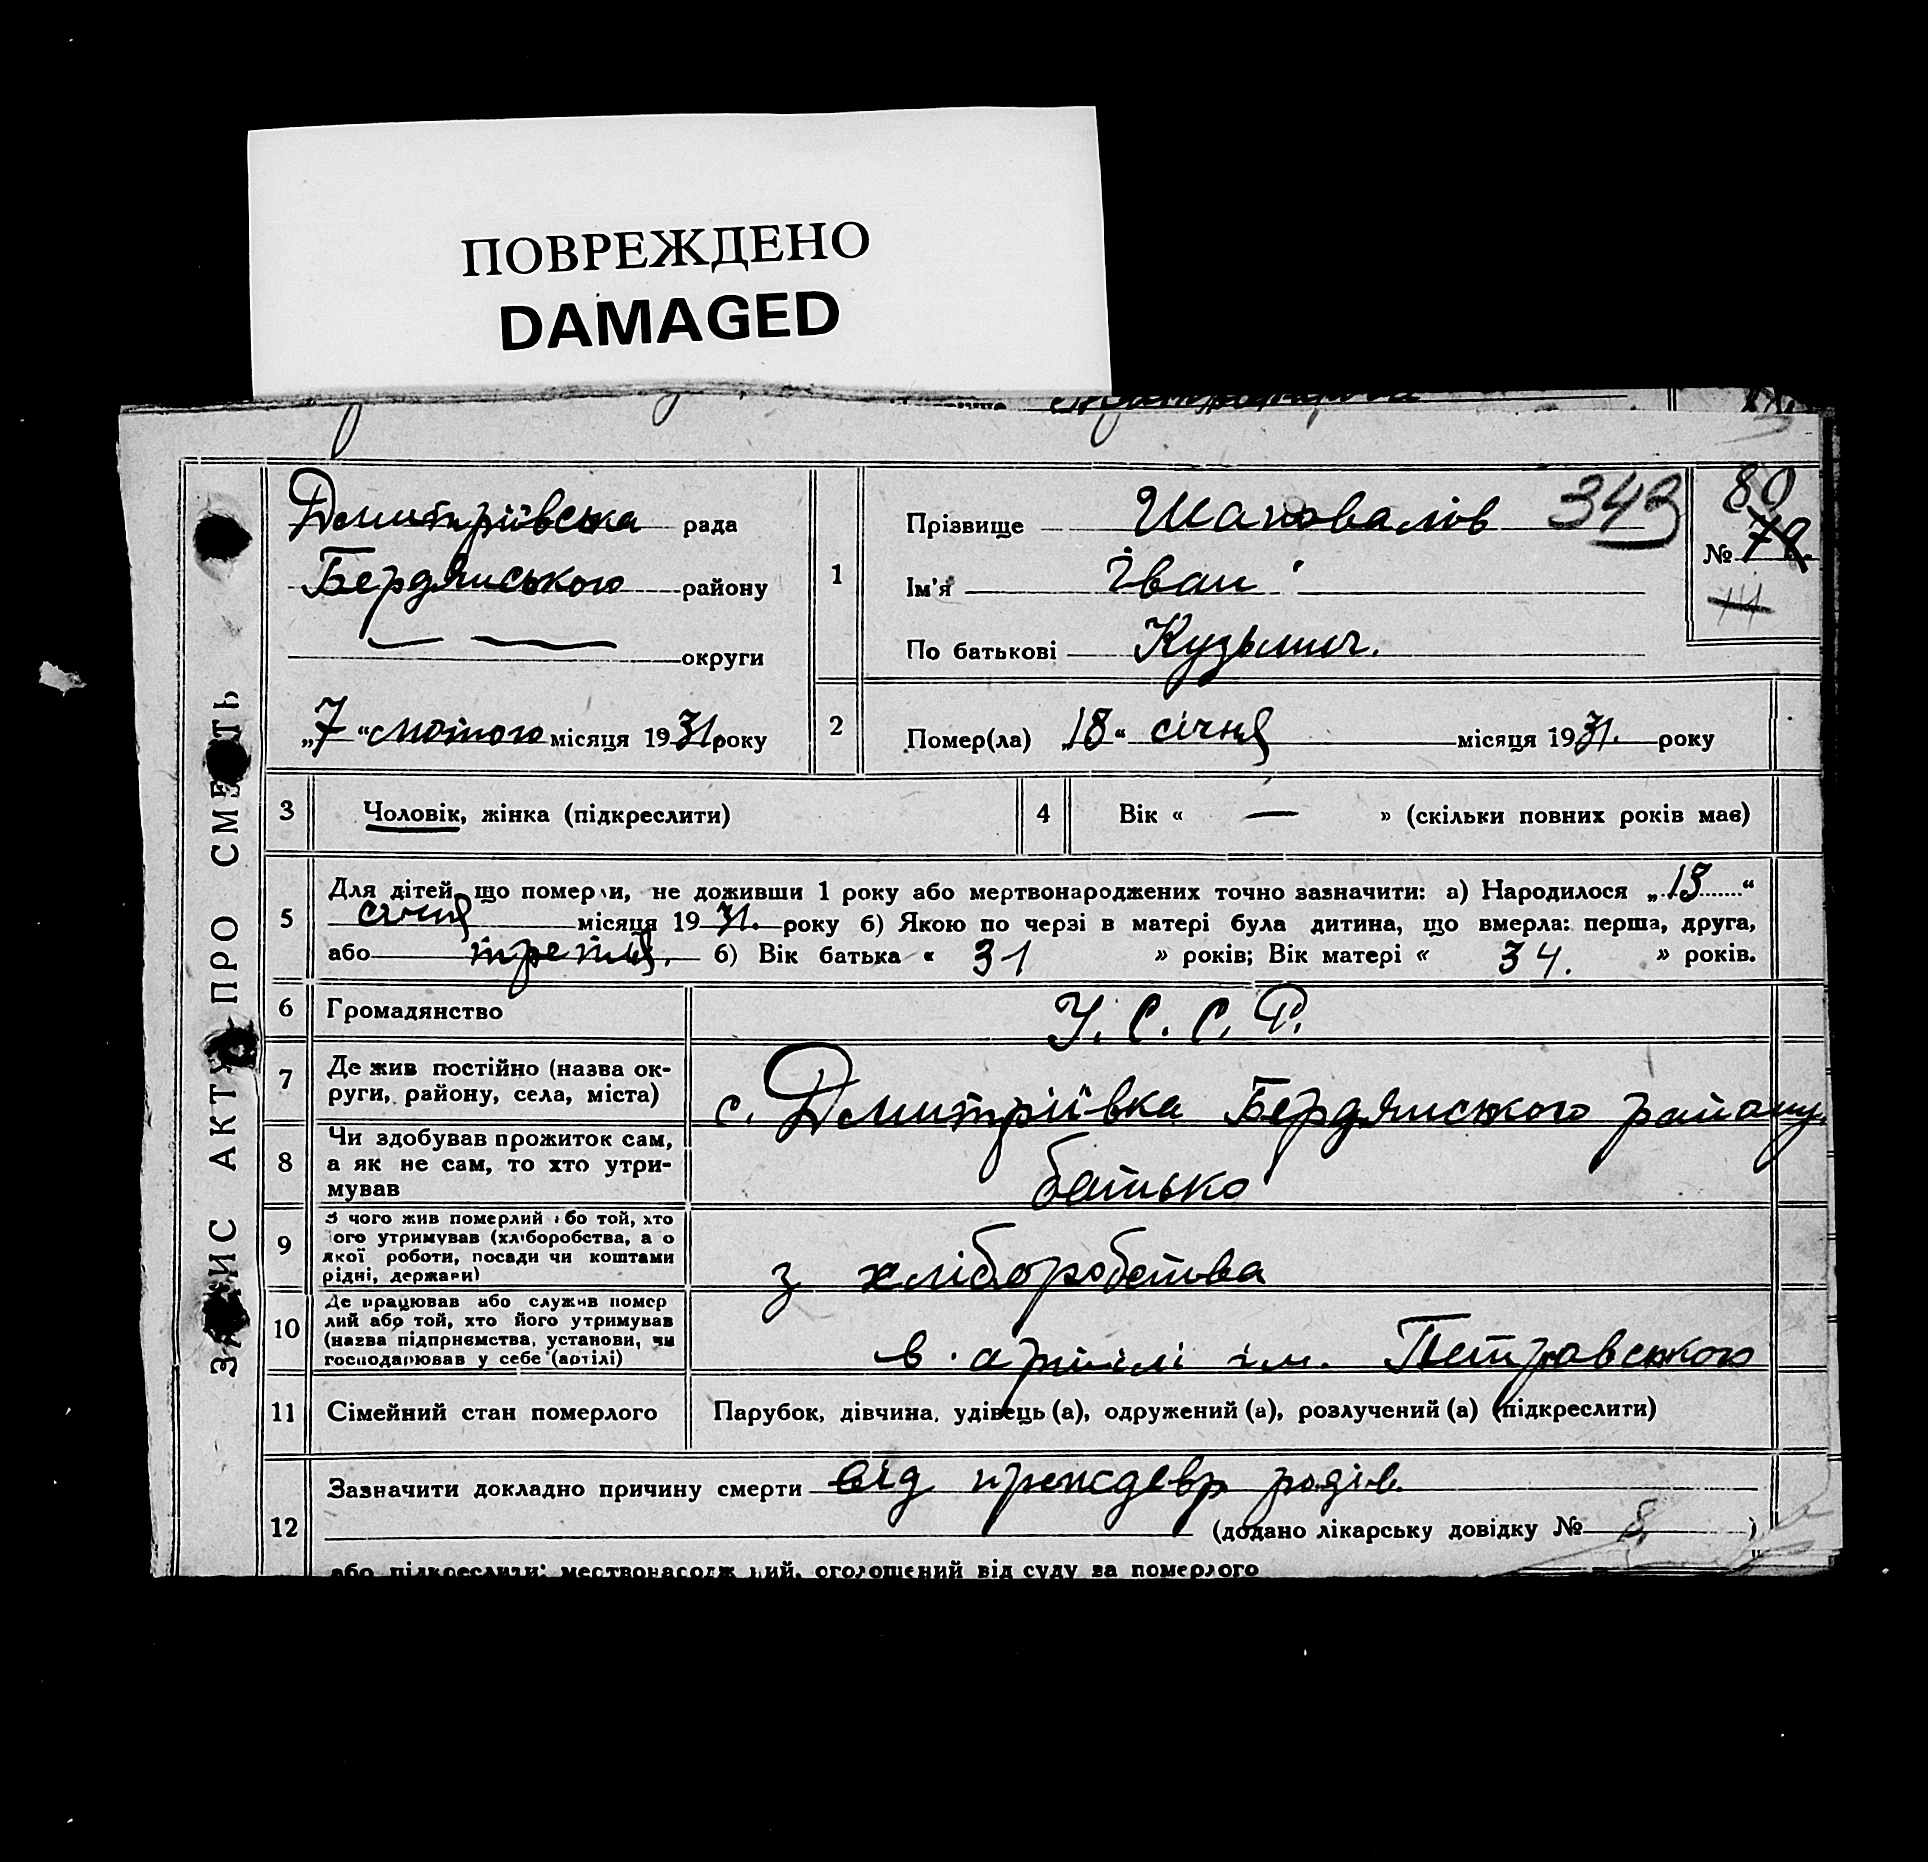 ПОВРЕЖДЕНО
DAMAGED
ЗАПИС АКТУ ПРО СМЕРТЬ
Дмитріївська рада
Бердянського району
округи
„7“ лютого місяця 1931. року
1
Прізвище Шаповалів 343
Ім'я Іван
По батькові Кузьмич.
80
№ 79.
2
Помер(ла) „18“ січня місяця 1931. року
3 Чоловік, жінка (підкреслити)
4 Вік « — » (скільки повних років має)
5 Для дітей, що померли, не доживши 1 року або мертвонароджених точно зазначити: а) Народилося „13“
січня місяця 1931. року б) Якою по черзі в матері була дитина, що вмерла: перша, друга,
або третья. б) Вік батька « 31 » років; Вік матері « 34. » років.
6 Громадянство У. С. С. Р.
7 Де жив постійно (назва ок-
руги, району, села, міста) с. Дмитріївка Бердянського району
8 Чи здобував прожиток сам,
а як не сам, то хто утри-
мував батько
9 З чого жив померлий або той, хто
його утримував (хліборобства, або
якої роботи, посади чи коштами
рідні, держави) з хліборобства
10 Де працював або служив помер
лий або той, хто його утримував
(назва підприємства, установи, чи
господарював у себе (артілі) в артілі ім. Петровського
11 Сімейний стан померлого Парубок, дівчина, удівець (а), одружений (а), розлучений (а) (підкреслити)
12 Зазначити докладно причину смерти від преждевр родів.
(додано лікарську довідку № 8 )
або підкреслити: мертвонароджений, оголошений від суду за померлого